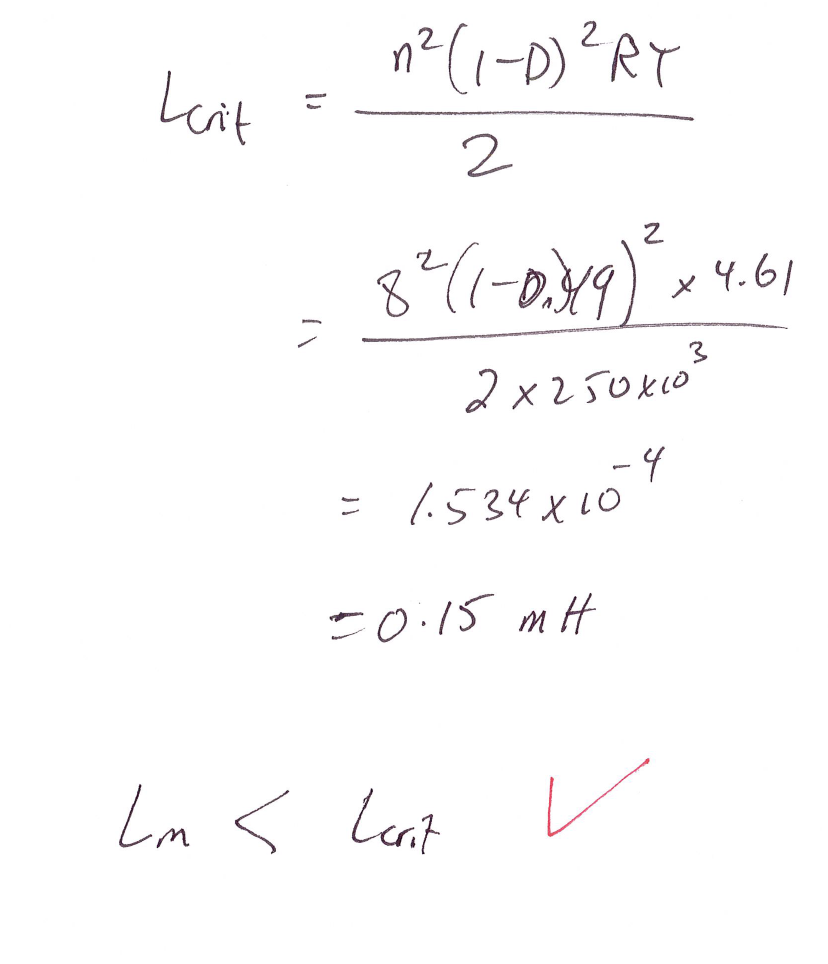 Lcrit = n²(1-D)²RT / 2
= 8²(1-0.49)² × 4.61 / 2 × 250 × 10³
= 1.534 × 10⁻⁴
= 0.15 mH
Lm < Lcrit ✓